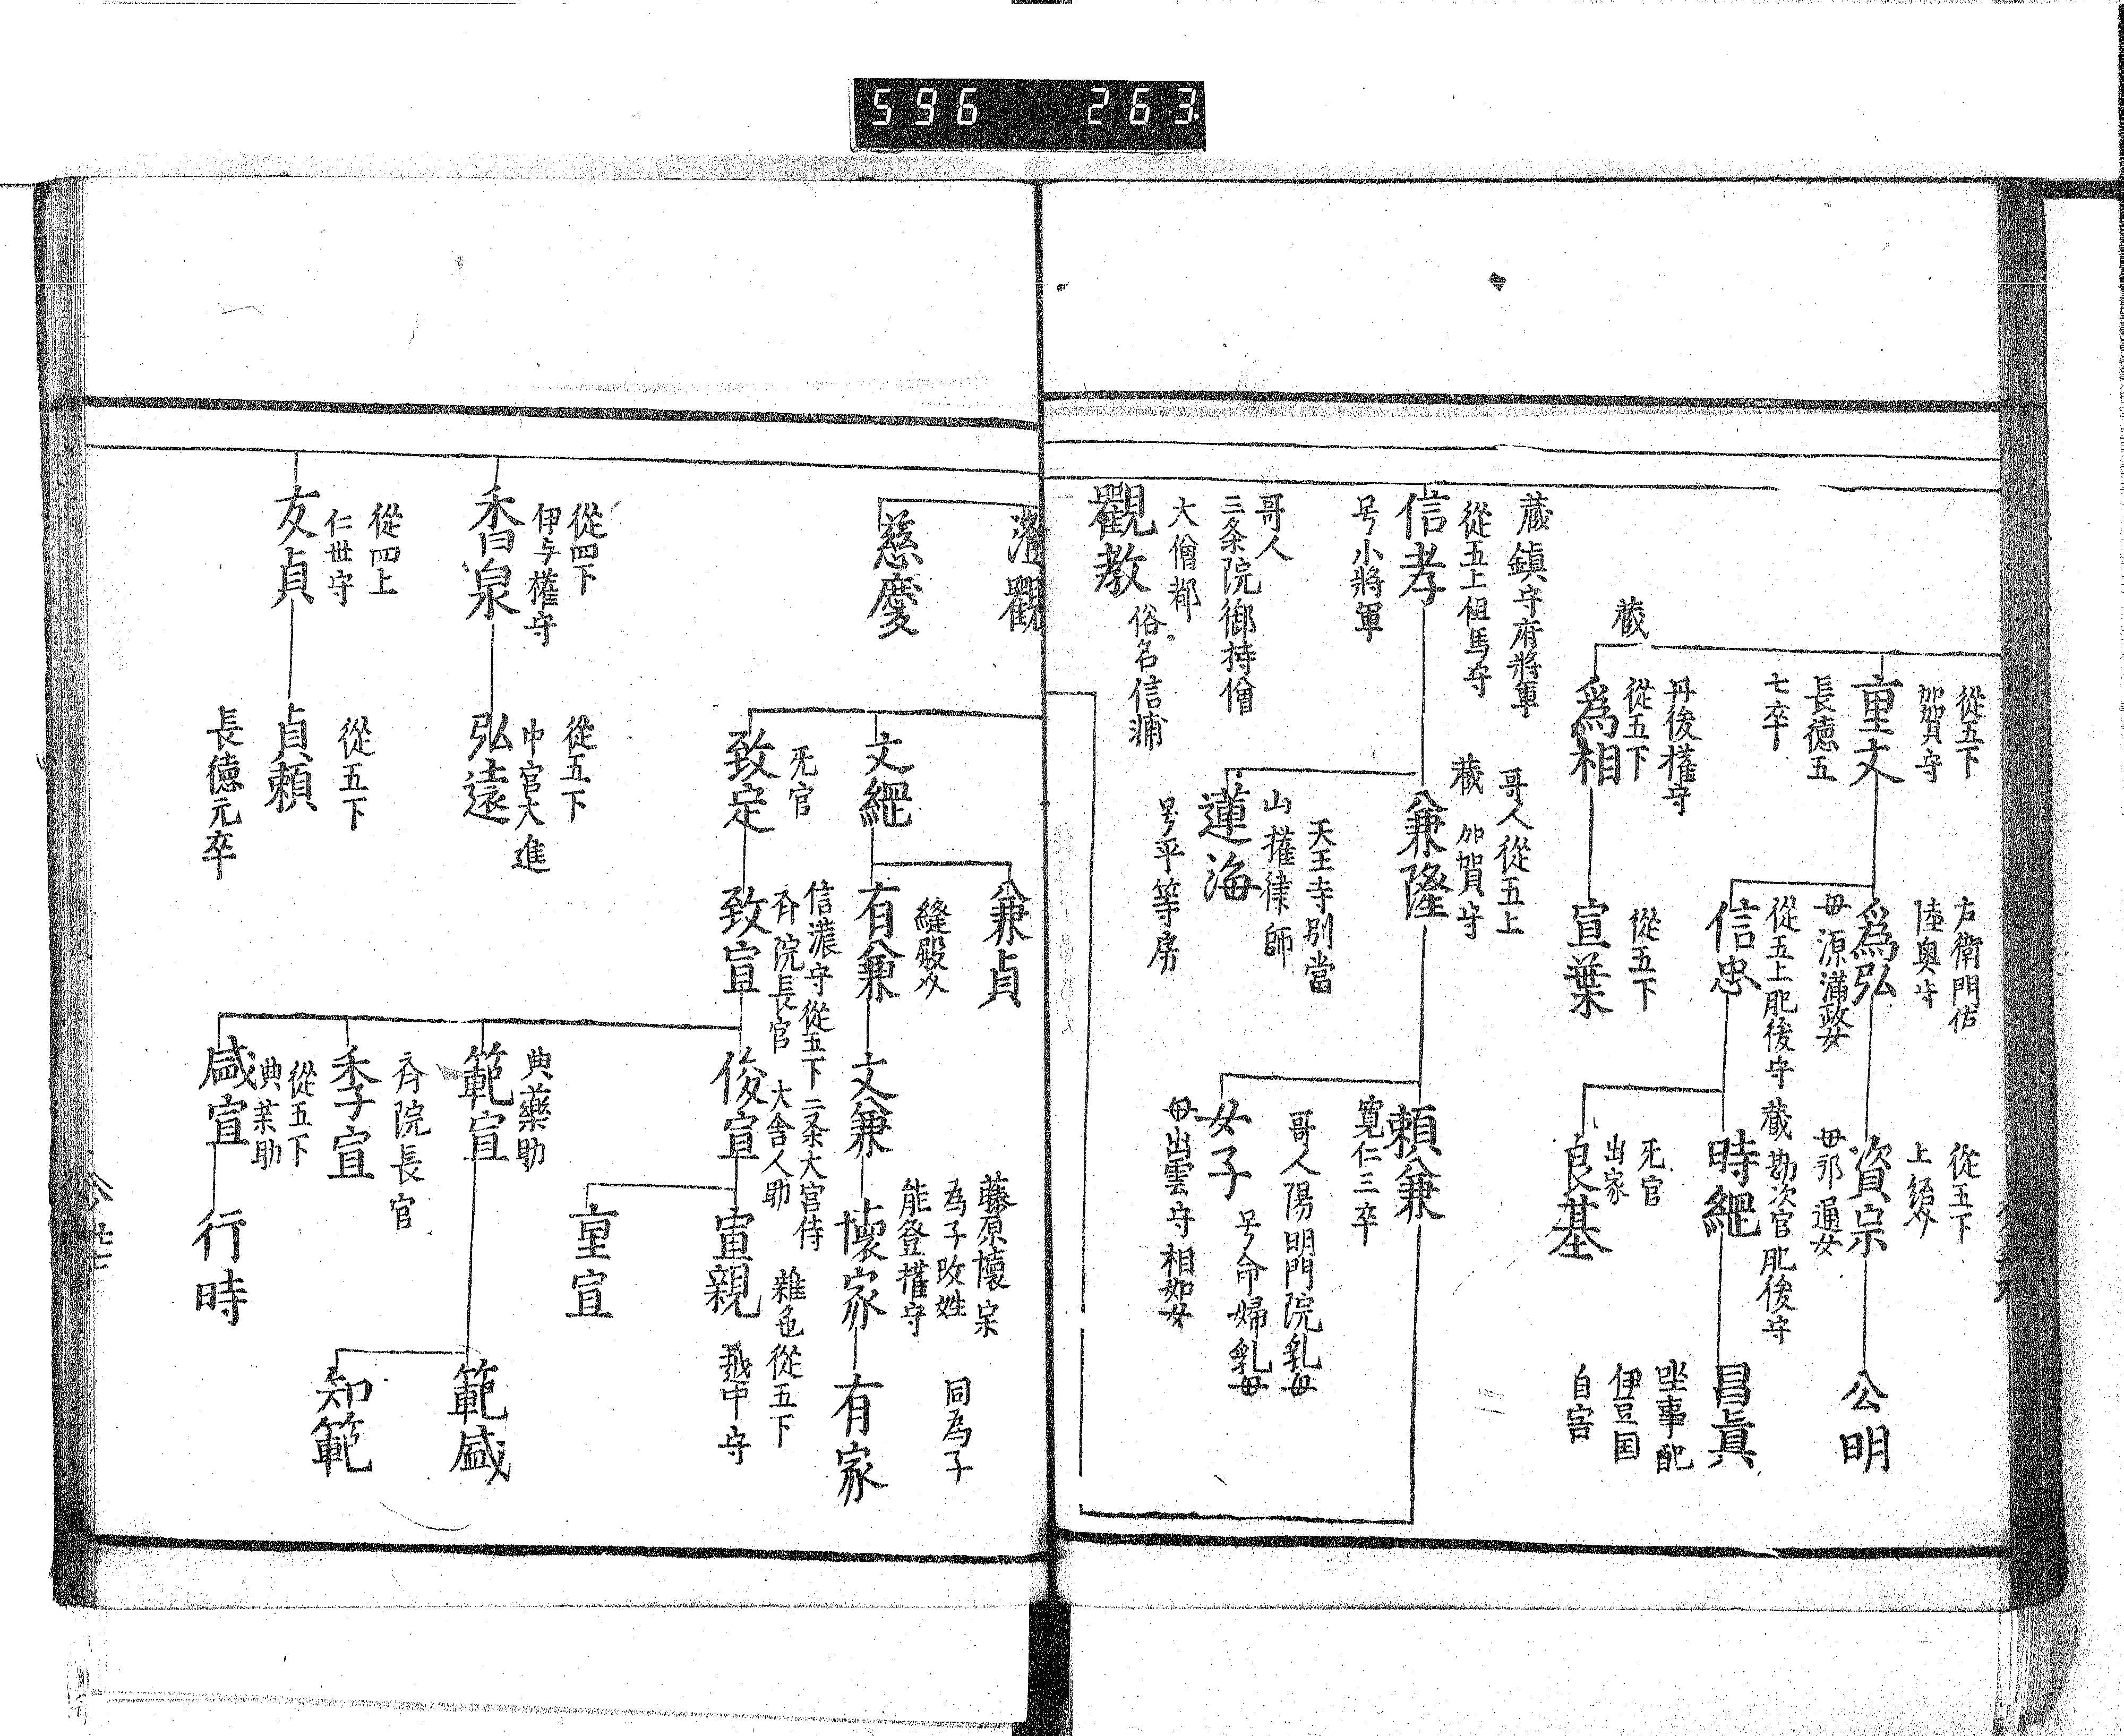 596 263
從五下
加賀守
重文
長德五
七卒
右衛門佐
陸奥守
為弘
母源満政女
從五下
資宗
公明
從五上肥後守
信忠
蔵勘次官肥後守
時綱
坐事配
伊豆国
自害
昌真
死官
出家
良基
蔵
丹後權守
從五下
為相
從五下
宣葉
蔵鎮守府將軍
從五上但馬守
信孝
号小將軍
哥人從五上
蔵 加賀守
兼隆
頼兼
寛仁三卒
天王寺別當
山權律師
蓮海
号平等房
哥人陽明門院乳母
号命婦乳母
女子
母出雲守相如女
哥人
三条院御持僧
大僧都
觀教
俗名信輔
慈慶
文綱
兼貞
有兼
文兼
藤原懷宗
為子改姓
能登權守
懷家
同為子
有家
死官
致定
信濃守從五下二条大宮侍
斉院長官
致宣
大舎人助
俊宣
雜色從五下
越中守
宣親
重宣
典藥助
範宣
範盛
知範
斉院長官
季宣
從五下
盛宣
行時
從四下
伊与權守
香泉
從五下
中宮大進
弘遠
從四上
友貞
從五下
貞頼
長德元卒